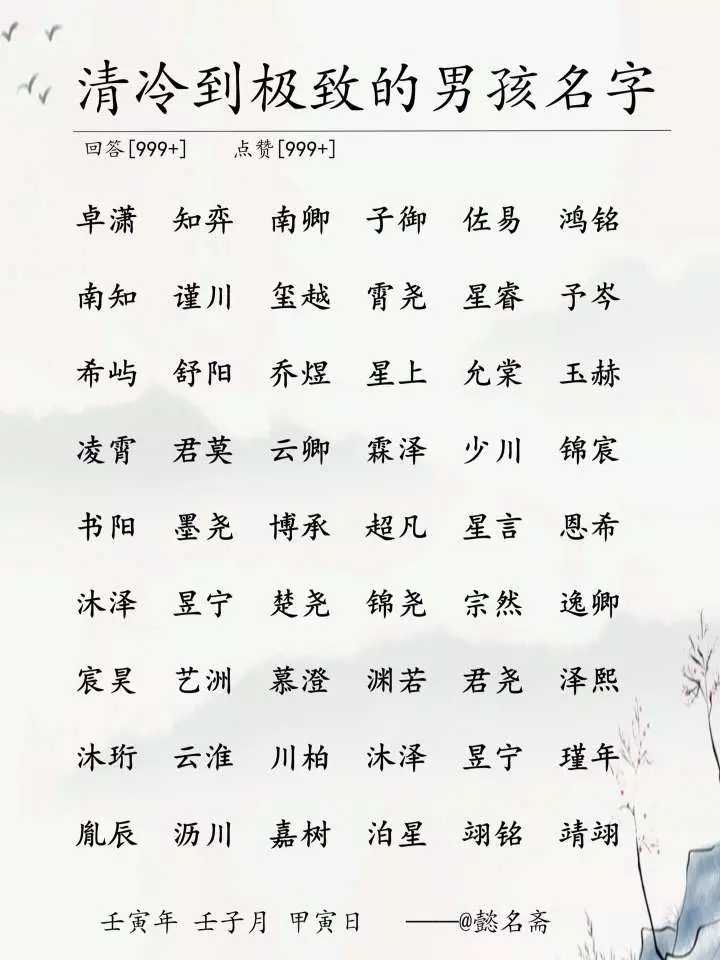 清冷到极致的男孩名字
回答[999+] 点赞[999+]
卓潇 知弈 南卿 子御 佐易 鸿铭
南知 谨川 玺越 霄尧 星睿 予岑
希屿 舒阳 乔煜 星上 允棠 玉赫
凌霄 君莫 云卿 霖泽 少川 锦宸
书阳 墨尧 博承 超凡 星言 恩希
沐泽 昱宁 楚尧 锦尧 宗然 逸卿
宸昊 艺洲 慕澄 渊若 君尧 泽熙
沐珩 云淮 川柏 沐泽 昱宁 瑾年
胤辰 沥川 嘉树 泊星 翊铭 靖翊
壬寅年 壬子月 甲寅日 ——@懿名斋